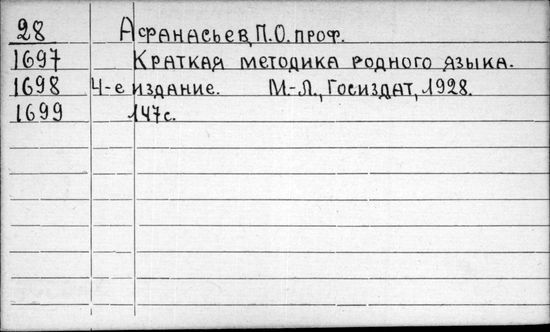 28 Афанасьев, П.О. проф.
1697 Краткая методика родного языка.
1698 4-е издание. М.-Л., Госиздат, 1928.
1699 147с.